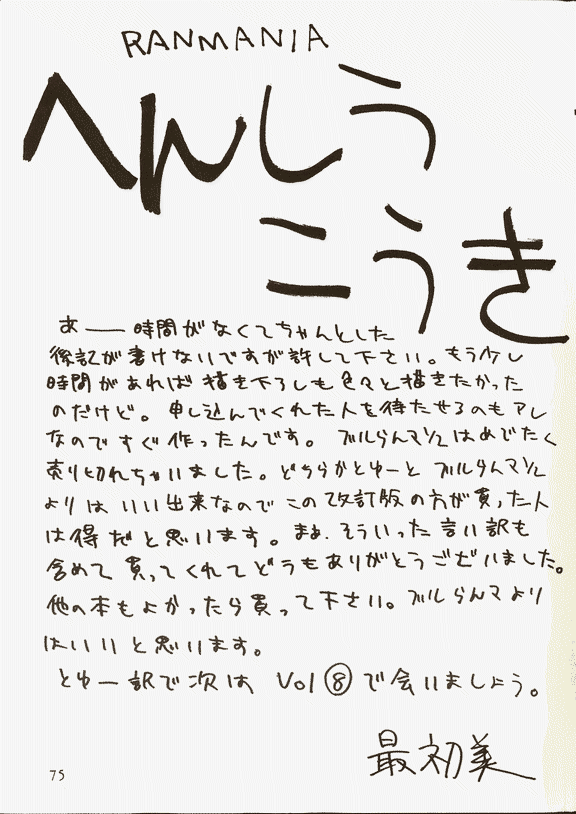 RANMANIA
へんしう
こうき
あ——時間がなくてちゃんとした
後記が書けないですが許して下さい。もう少し
時間があれば描き下ろしも色々と描きたかった
のだけど。申し込んでくれた人を待たせるのもアレ
なのですぐ作ったんです。ブルらんマ1/2はめでたく
売り切れちゃいました。どちらかとゆーとブルらんマ1/2
よりはいい出来なのでこの改訂版の方が買った人
は得だと思います。まぁ、そういった言い訳も
含めて買ってくれてどうもありがとうございました。
他の本もよかったら買って下さい。ブルらんマより
はいいと思います。
とゆー訳で次はVol⑧で会いましょう。
最初美
75